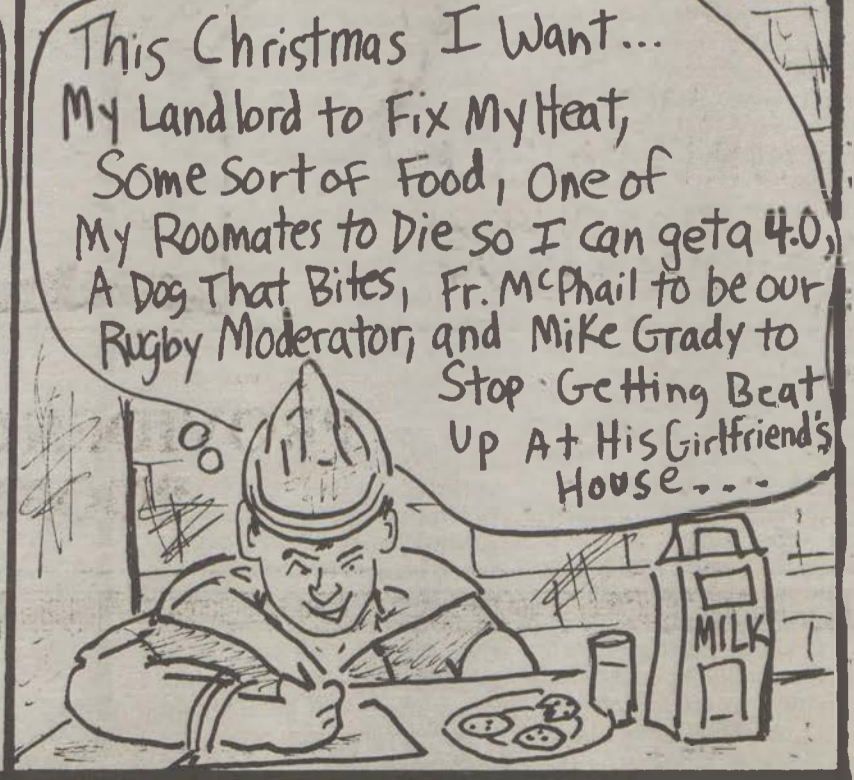 This Christmas I Want...
My Landlord to Fix My Heat,
Some Sort of Food, One of
My Roomates to Die so I can get a 4.0,
A Dog That Bites, Fr. McPhail to be our
Rugby Moderator, and Mike Grady to
Stop Getting Beat
Up At His Girlfriend's
House....
MILK